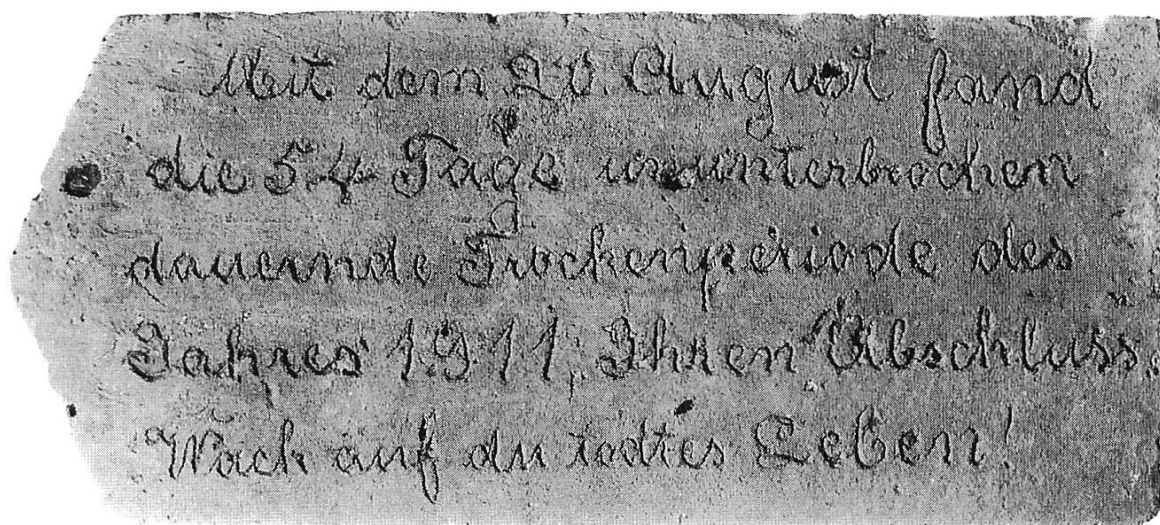 Mit dem 20. August fand
die 54 Tage ununterbrochen
dauernde Trockenperiode des
Jahres 1911, Ihren Abschluss.
Wach auf du todtes Leben!